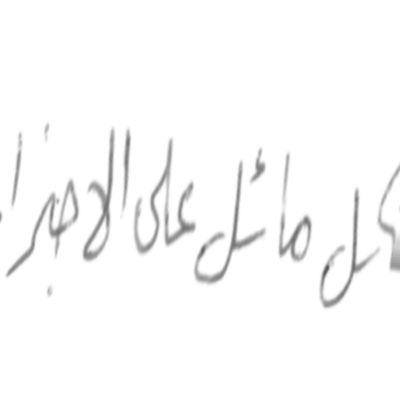 كل مائل على الاجزا